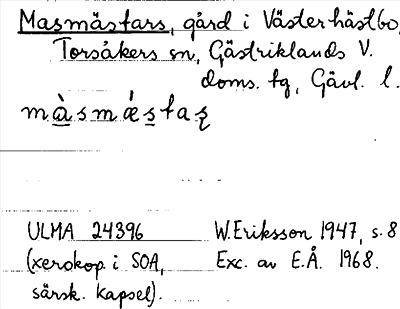 Masmästars, gård i Västerhästbo,
Torsåkers sn, Gästriklands V.
doms. tg, Gävl. l.
màsmǽstaʂ
ULMA 24396
(xerokop. i SOA,
särsk. kapsel).
W. Eriksson 1947, s. 8
Exc. av E.Å. 1968.